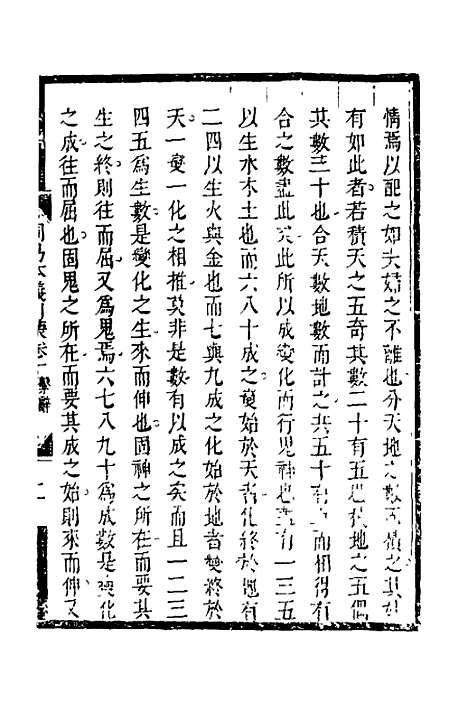 情焉以配之如夫婦之不離也分天地之數而積之其
有如此者若積天之五奇其數二十有五也積地之五偶
其數三十也合天數地數而計之共五十有而相得有
合之數盡此矣此所以成變化而行鬼神也蓋有一三五
以生水木土也而六八十成之變始於天者化終於地有
二四以生火與金也而七與九成之化始於地者變終於
天一變一化之相推莫非是數有以成之矣而且一二三
四五爲生數是變化之生來而伸也固神之所在而要其
生之終則往而屈又爲鬼焉六七八九十爲成數是變化
之成往而屈也固鬼之所在而要其成之始則來而伸又
周易本義引蒙卷 繫辭